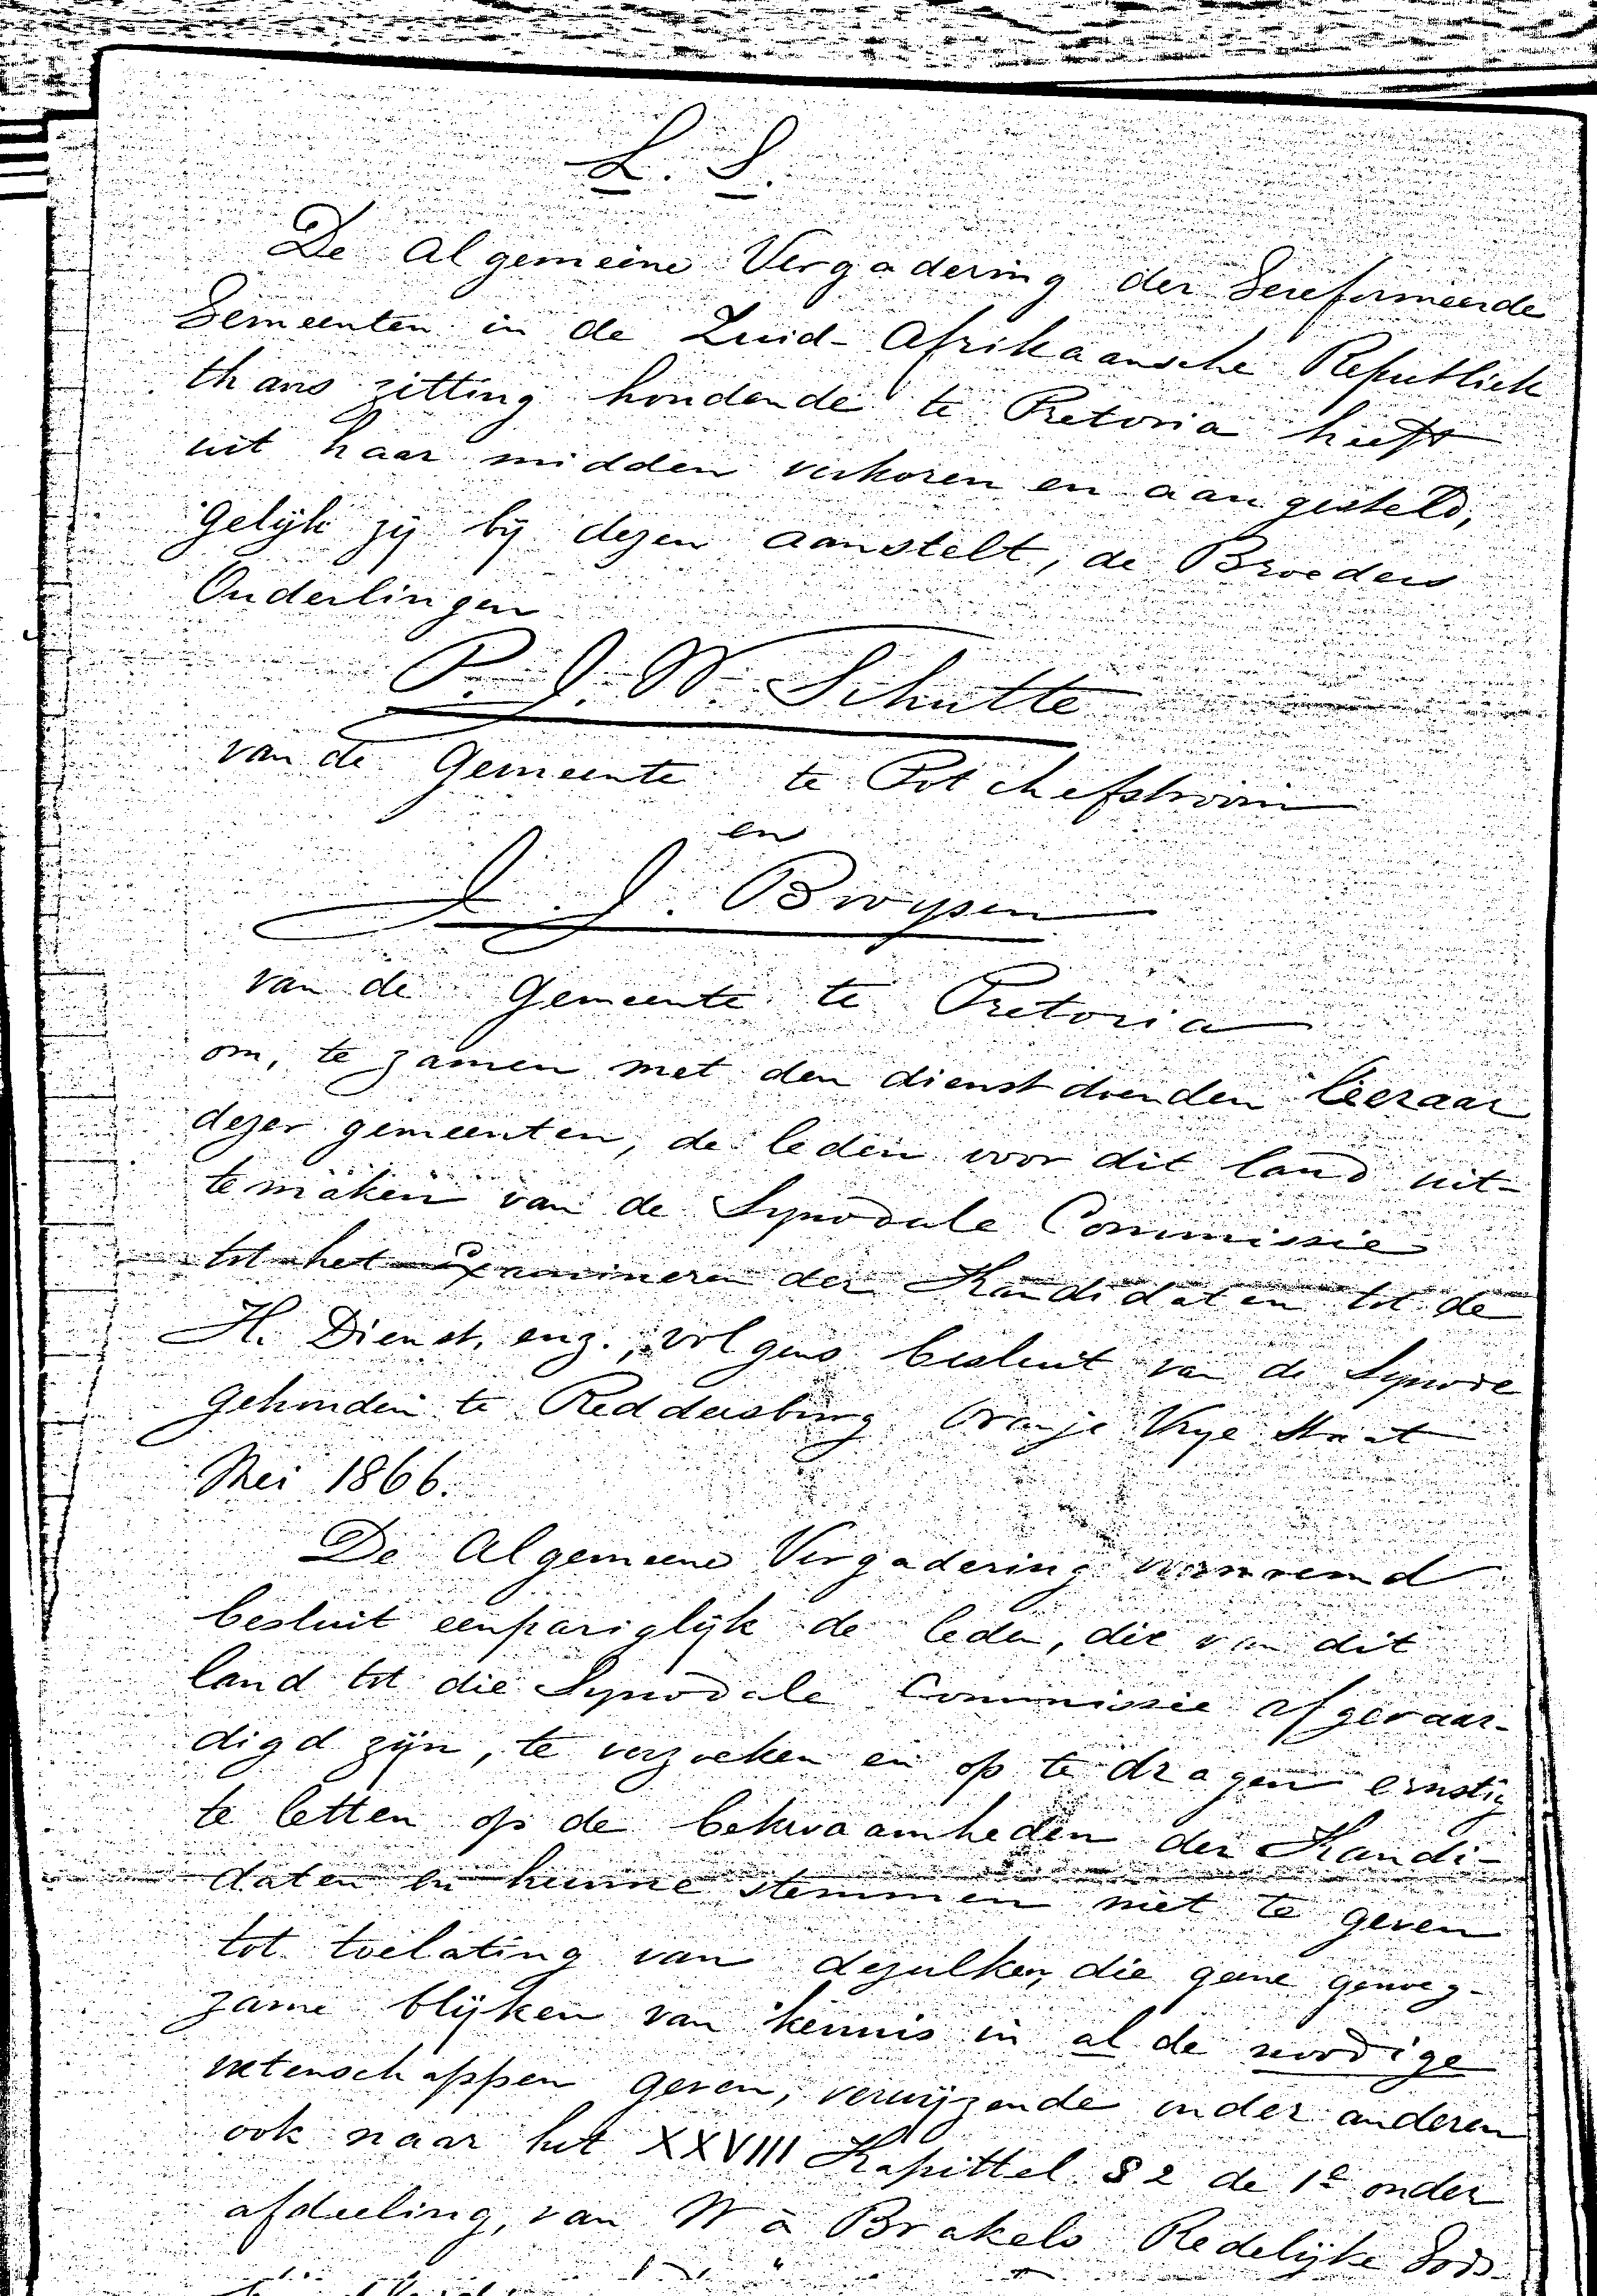 L. S.
De Algemeene Vergadering der Gereformeerde
Gemeenten in de Zuid-Afrikaansche Republiek
thans zitting houdende te Pretoria heeft
uit haar midden verkoren en aangesteld,
Gelijk zij bij dezen aanstelt, de Broeders
Ouderlingen
P. J. W. Schutte
van de Gemeente te Potchefstroom
en
J. J. Bruysen
van de Gemeente te Pretoria
om, te zamen met den dienstdoenden leeraar
dezer gemeenten, de leden voor dit land uit-
temaken van de Synodale Commissie
tot het Examineren der Kandidaten tot de
H. Dienst, enz., volgens besluit van de Synode
Gehouden te Reddersburg Oranje Vrye Staat
Mei 1866.
De Algemeene Vergadering
besluit eenpariglijk de leden, die van dit
land tot die Synodale Commissie afgevaar-
digd zijn, te verzoeken en op te dragen ernstig
te letten op de bekwaamheden der Kandi-
daten en hunne stemmen niet te geven
tot toelating van dezulken, die geene genoeg-
zame blijken van kennis in al de noodige
wetenschappen geven, verwijzende onder anderen
ook naar het XXVIII Kapittel § 2 de 1e onder
afdeeling, van W à Brakels Redelijke Gods-